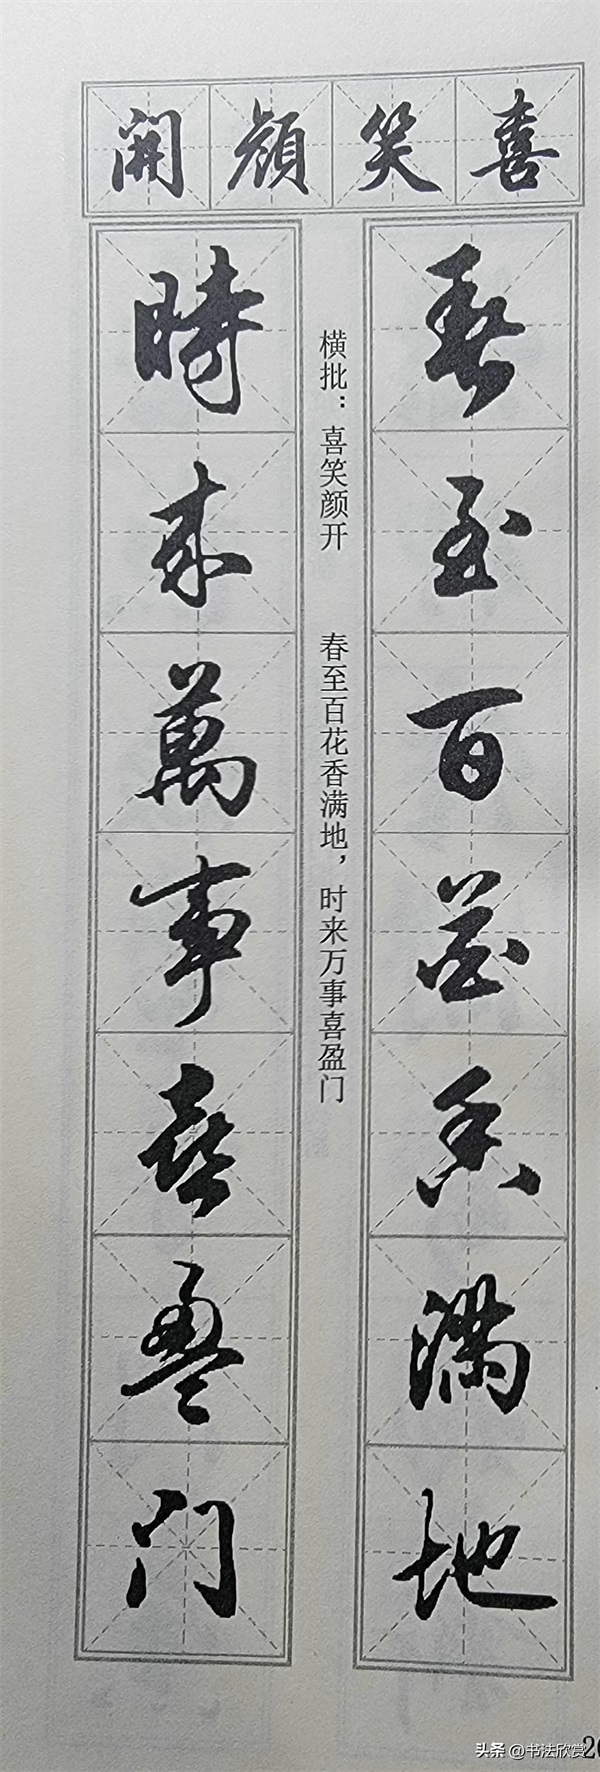 喜笑顔開
春至百花香满地
横批：喜笑颜开　春至百花香满地，时来万事喜盈门
時来萬事喜盈门
头条 @书法欣赏